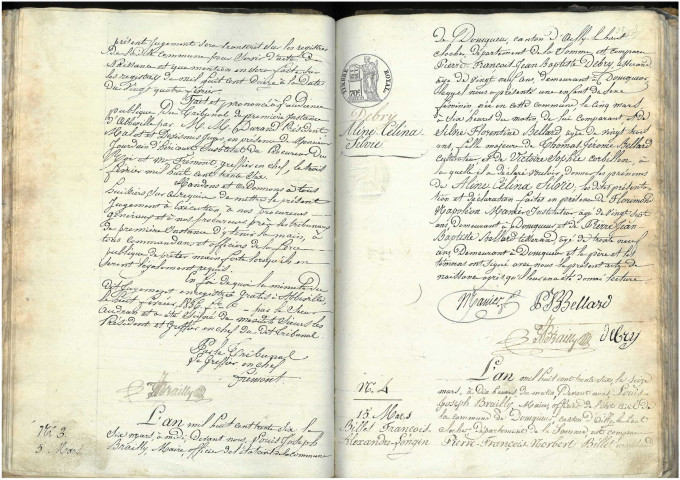 présent jugement sera transcrit sur les registres
de ladite commune pour servir d'acte de
Naissance et que mention en sera faite sur
les registres de mil huit cent à la date
du vingt quatre février
Fait et prononcé à l'audience
publique du Tribunal de première instance
d'Abbeville par M.M. Durand Président
Malot et Juges, en présence de Monsieur
Substitut du Procureur du
Roi et Mr Fremont greffier en chef, le
février mil huit cent trente six
Mandons et ordonnons à tous
huissiers sur ce requis de mettre le présent
jugement à exécution, à nos procureurs
généraux et à nos procureurs près les tribunaux
de première Instance d'y tenir la main, à
tous commandans et officiers de la force
publique de prêter main forte lorsqu'ils en
seront légalement requis
En foi de quoi la minute du
dit jugement enregistrée gratis à Abbeville
le huit février 1836 par le Sieur
et a été signée de mesdits Sieurs les
Président et Greffier en chef du dit tribunal
Pour le Tribunal
Le Greffier en chef
Fremont
Brailly
N° 3.
5 Mars
L'an mil huit cent trente six le
six mars à midi, Devant nous, Louis Joseph
Brailly Maire officier de l'état civil de la commune
TIMBRE ROYAL
Debry
Aline Célina
Silvie
de Domqueur, canton d'Ailly le haut
clocher, département de la Somme, est comparu
Pierre François Jean Baptiste Debry,
âgé de vingt neuf ans, demeurant à Domqueur
lequel nous a présenté une enfant de sexe
féminin, née en cette commune le cinq mars
à six heures du matin de lui comparant et de
Silvie Florentine Bellard âgée de vingt huit
ans, fille majeure de Thomas Jérome Bellard
cultivateur, et de Victoire Sophie Corbillon, à
laquelle il a déclaré vouloir donner les prénoms
de Aline Célina Silvie, les dites présenta-
tion et déclaration faites en présence de Florimond
Napoléon Manier Instituteur, âgé de vingt huit
ans demeurant à Domqueur et de Pierre Jean
Baptiste Bellard tisserand âgé de trente neuf
ans, demeurant à Domqueur et les père et les
témoins ont signé avec nous le présent acte de
naissance après qu'il leur en a été donné lecture
Manier PJBBellard
Brailly debry
N° 4
15. Mars
Billet François
Alexandre Longin
L'an mil huit cent trente six, le seize
mars, à dix heures du matin, Devant nous Louis
Joseph Brailly, Maire, officier de l'état civil de
la commune de Domqueur, canton d'Ailly le haut
clocher, département de la Somme, est comparu
Pierre François Norbert Billet